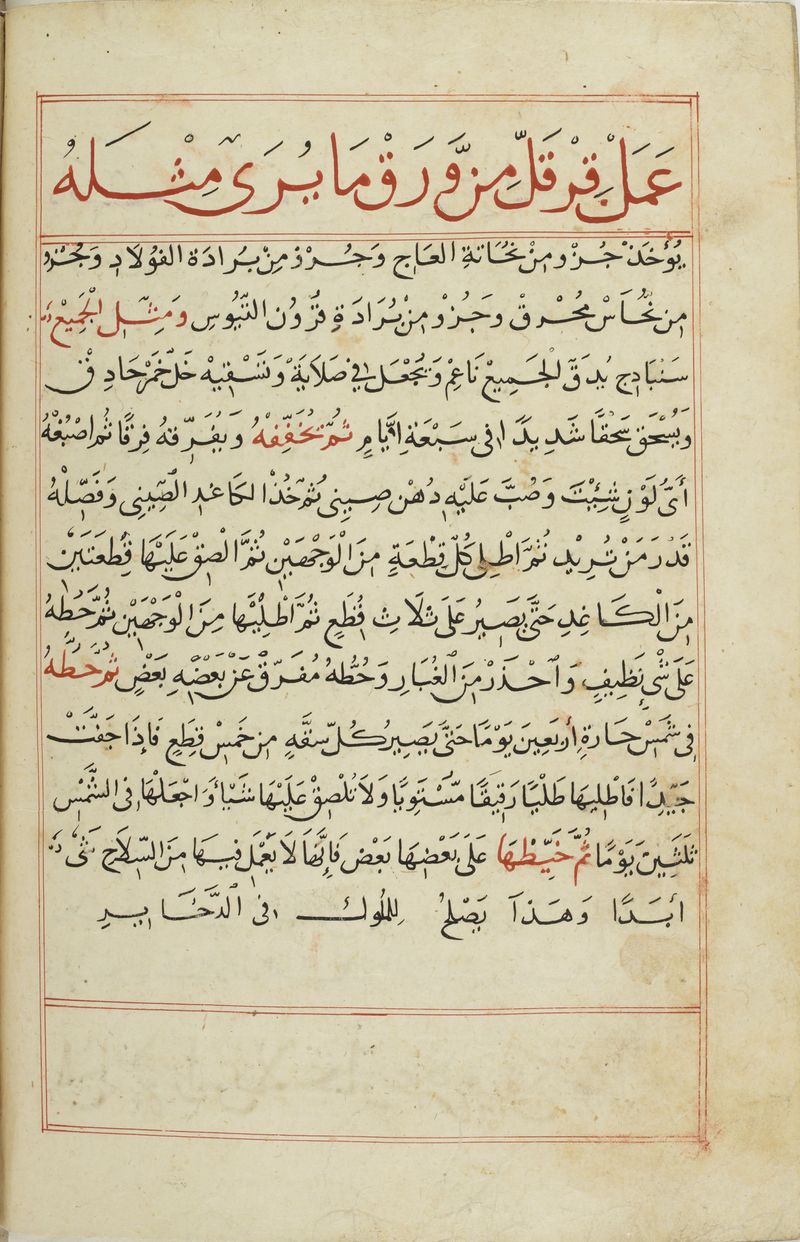 عَمَلُ قَرْقَلٍ مِنْ وَرَقٍ مَا يُرَى مِثْلُهُ
يُؤْخَذُ جُزْو مِنْ نُحَاتَةِ العَاجِ وَجُزْو مِنْ بُرَادَة الفُولَادِ وَجُزْو
مِن نُحَاسْ مُحْرقْ وجُزْو مِنْ بُرَادَةِ قُرُون التُّيُوسِ وَمِثْلِ الْجَمِيعْ
سَنْبَادِج يُدَقّ الْجَمِيعْ نَاعِمْ وَيُجْعَل فِي صَلَايَةْ وَتَسْقِيهْ خَلّ خَمْرْ حَادِقْ
وَيُسْحَق سَحْقًا شَدِيدًا فِي سَبْعَةِ اَيَّامٍ ثُمَّ تُجَفِّفْهُ وَيُفَرِّقهُ فِرَقًا ثُمَّ اصْبُغْهُ
أَىَّ لَوْنٍ شِئْتَ وَصُبَّ عَلَيْهِ دُهْن صِينِى ثُمَّ خُذْ الكَاغَدِ الصِّينِى وَفَصِّلْهُ
قَدْرَ مَنْ تُرِيْد ثُمَّ اَطْلِى كُلّ قِطْعَةٍ مِنَ الْوَجْهَيْن ثُمَّ الْصِقْ عَلَيْهَا قُطعَتَيْن
مِنَ الْكَاغِدِ حَتَّى يَصِيرُ عَلَى ثَلَاثِ قُطَعٍ ثُمَّ اَطْلِيْهَا مِنَ الْوَجْهَيْن ثُمَّ حُطَّهُ
عَلَى شَىْ نَظِيفٍ وَاحْذَرْ مِنَ الْغُبَارِ وَحُطَّهُ مُفَرَّقْ عَنْ بَعْضِهِ بَعْضٍ ثُمَّ حُطَّهُ
فِى شَمْسْ حَارَةٍ أَرْبَعِينَ يَوْمًا حَتَّى يَصِيرُ كُلّ سقّهِ مِن خَمْسْ قِطَعٍ فَإِذَا جَفَّتْ
جَيِّدًا فَاطْلِيهَا طَلْيًا رَقِيقًا مُسْتَوِيًا وَلَا تُلْصِقْ عَلَيْهَا شَيْأ وَاجْعَلْهَا فِى الشَّمْسِ
ثَلَثِينَ يَوْمًا ثُمَّ خَيِّطْهَا عَلَى بَعْضِهَا بَعْض فَإِنَّهَا لَا يَعْمَل فِيهَا مِنَ السِّلَاحِ شَىْ
اَبَدًا وَهَذَا يَصْلحُ لِلمُلُوك فِى الدَّخَايِرِ